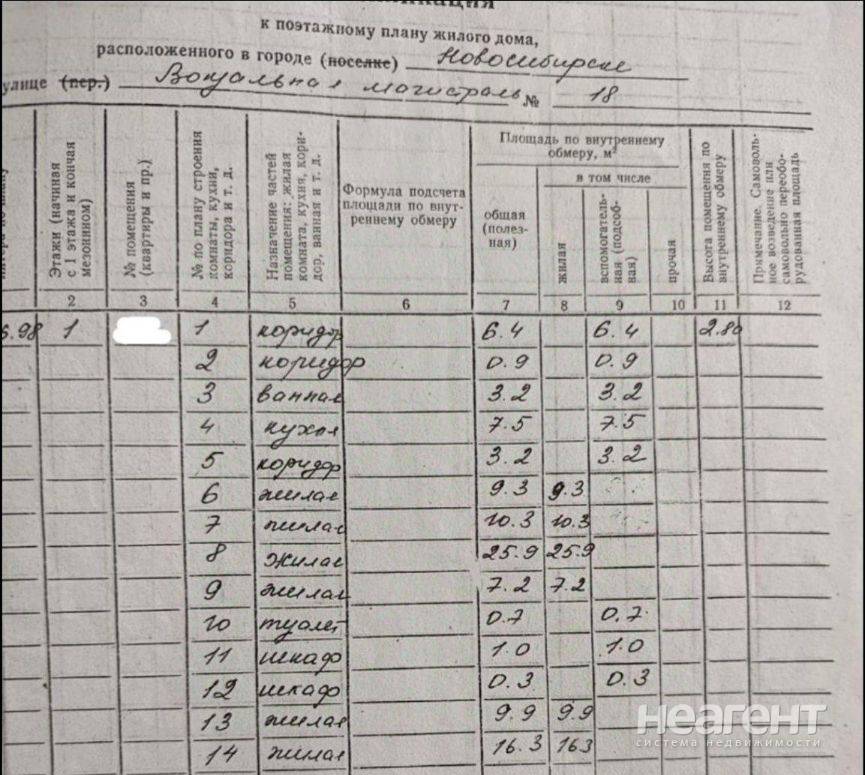 к поэтажному плану жилого дома,
расположенного в городе (поселке) Новосибирске
улице (пер.) Вокзальная магистраль № 18
Этажи (начиная с 1 этажа и кончая мезонином)
№ помещения (квартиры и пр.)
№ по плану строения комнаты, кухни, коридора и т. д.
Назначение частей помещения: жилая комната, кухня, коридор, ванная и т. д.
Формула подсчета площади по внутреннему обмеру
Площадь по внутреннему обмеру, м²
общая (полезная)
в том числе
жилая
вспомогательная (подсобная)
прочая
Высота помещения по внутреннему обмеру
Примечание. Самовольное возведение или самовольно переоборудованная площадь
2 3 4 5 6 7 8 9 10 11 12
6.98 1 1 коридор 6.4 6.4 2.80
2 коридор 0.9 0.9
3 ванная 3.2 3.2
4 кухня 7.5 7.5
5 коридор 3.2 3.2
6 жилая 9.3 9.3
7 жилая 10.3 10.3
8 жилая 25.9 25.9
9 жилая 7.2 7.2
10 туалет 0.7 0.7
11 шкаф 1.0 1.0
12 шкаф 0.3 0.3
13 жилая 9.9 9.9
14 жилая 16.3 163
неагент
система недвижимости